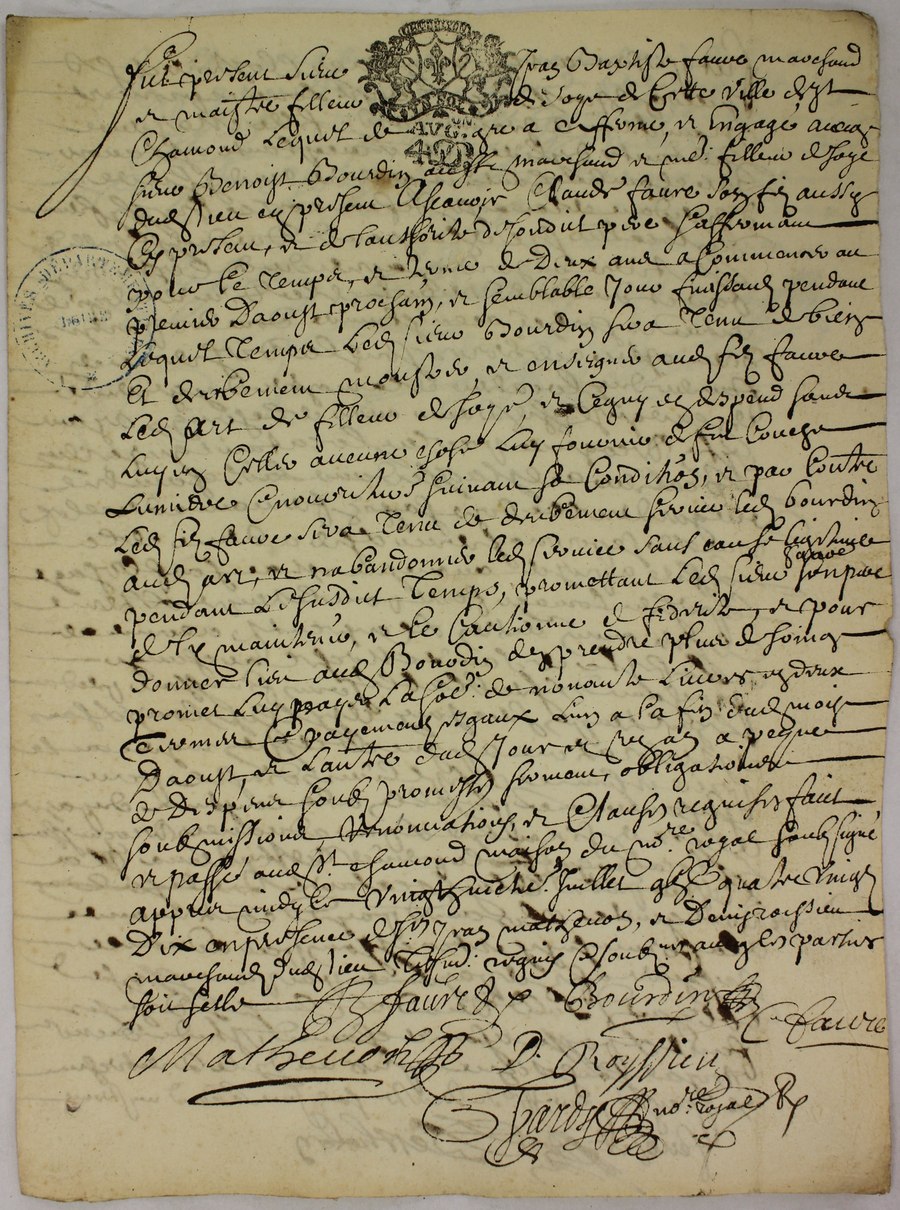 Fut present Sieur Jean Baptiste faure marchand
et maistre filleur de soye de Cette ville de st
Chamond Lequel de gre a afferme, et Engagé avecq
sieur Benoist Bourdin aussy marchand et me. filleur de soye
dud lieu cy present Ascavoir Claude faure son fils aussy
Cy present, et de lauthorite de sondit pere saffermant
pour le Temps, et terme de Deux ans a Commencer au
premier Daoust prochain, et semblable Jour finissant pendant
Lequel Temps Led sieur Bourdin sera Tenu de bien
Et deubement monstrer et enseigner aud fils faure
Led Art de filleur de soye, et Ce quy en despend sans
Luy en Celler aucune chose Luy fournir de feu Couche
Lumiere Et nourriture suivant sa Condition, et par Contre
Led fils faure sera Tenu de deubement servir led bourdin
aud art, et nabandonner led service sans cause legitime
pendant Le susdit Temps, promettant Led sieur faure son pere
de le maintenir, et le Cautionne de fidelite, et pour
donner lieu aud Bourdin de prendre plus de soing
promet Luy payer La so.e de nonante Livres en deux
Termes Et payements esgaux Lun a la fin dud mois
Daoust, et Lautre dud Jour en un an a peyne
de Despens soubs promesses serment, obligations
soubmissions Renonciations, et Clauses requises fait
et passé aud st. chamond maison du no.re royal soubsigné
appres midy le Vingt huict.e Juillet Quatre Vingt
Dix en presence de srs Jean mathevon, et Denis roissieu
marchands dud lieu Tesm. requis Et soubs.nes avec les parties
soit scelle
JB faure Bourdin
C. faure
Mathevon D. Royssieu
Chardy no.re royal
AVG.
ARCHIVES DÉPARTEMENTALES
LOIRE